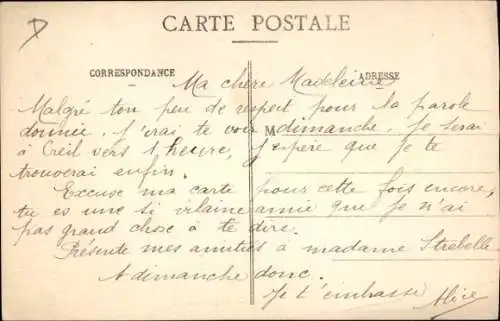 CARTE POSTALE
CORRESPONDANCE
ADRESSE
Ma chère Madeleine
Malgré ton peu de respect pour la parole
donnée, J'irai te voir dimanche, Je serai
M
à Creil vers 1 heure, J'espère que Je te
trouverai enfin.
Excuse ma carte pour cette fois encore,
tu es une si vilaine amie que Je n'ai
pas grand chose à te dire.
Présente mes amitiés à madame Strebelle
A dimanche donc.
Je t'embrasse Alice